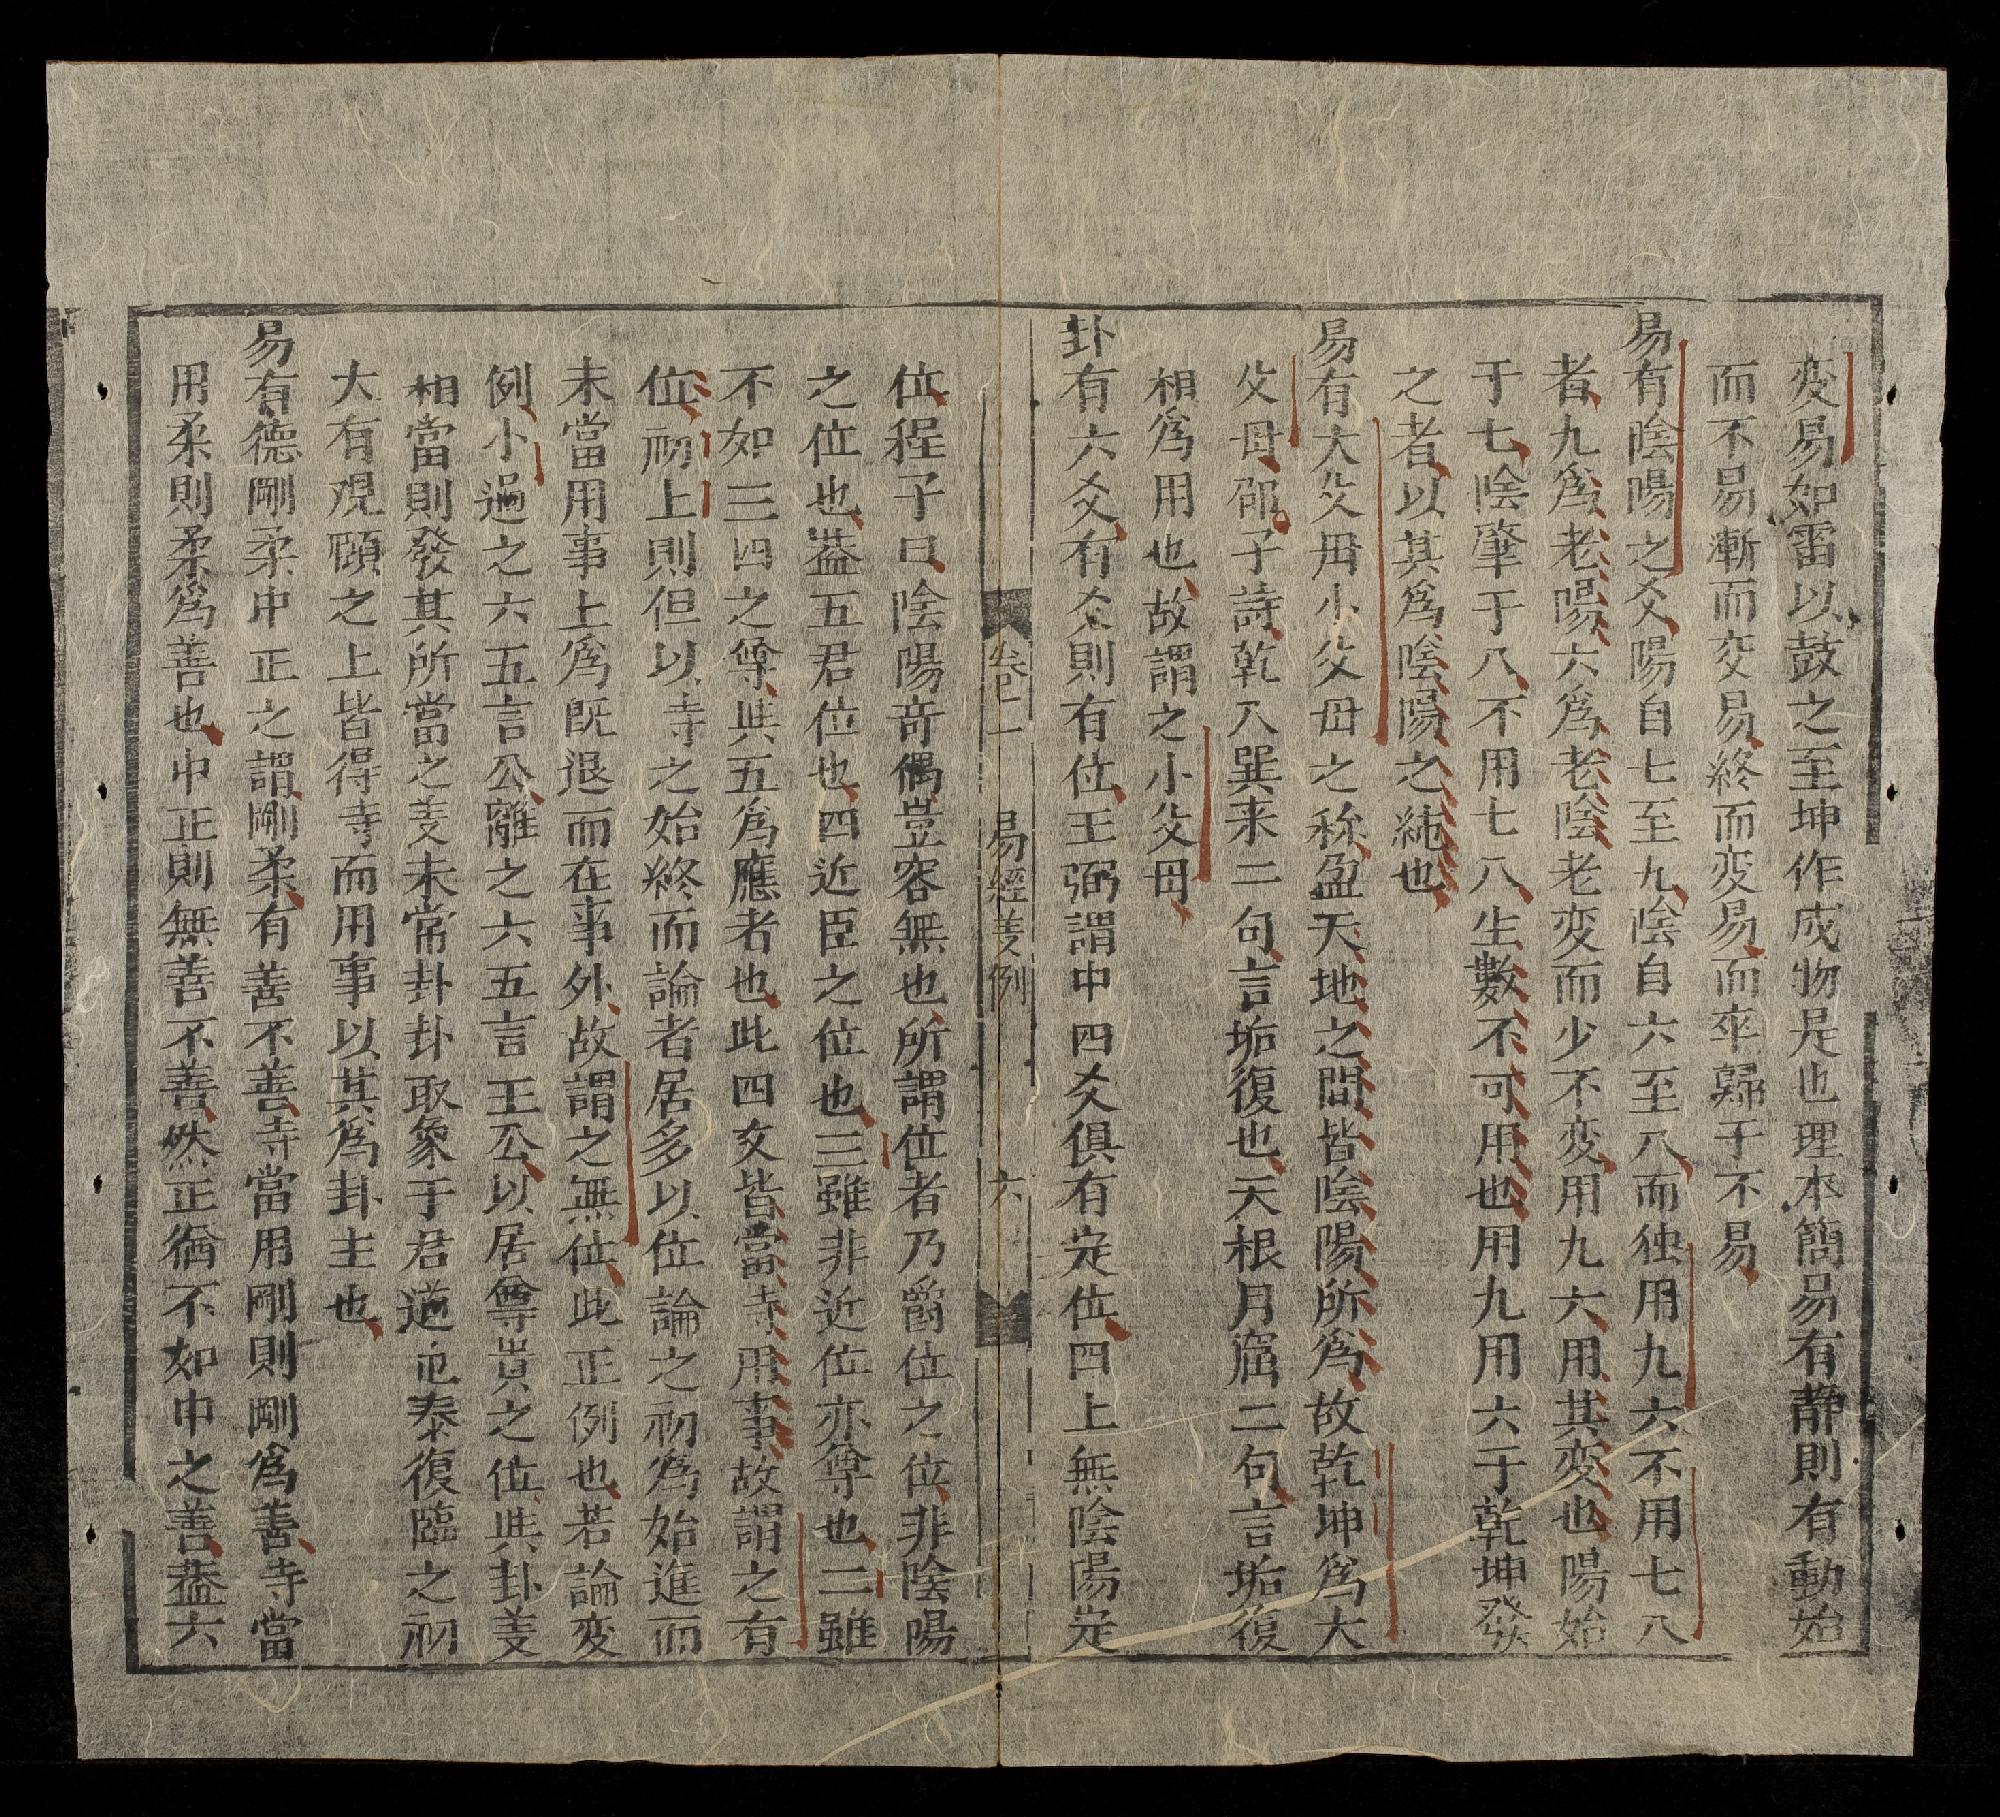 変易如雷以鼓之至坤作成物是也理本簡易有静則有動始
而不易漸而交易終而変易而卒歸于不易
易有陰陽之爻陽自七至九陰自六至八而独用九六不用七八
者九爲老陽六爲老陰老変而少不変用九六用其変也陽始
于七陰肇于八不用七八生數不可用也用九用六于乾坤發
之者以其爲陰陽之純也
易有大父母小父母之称盈天地之間皆陰陽所爲故乾坤爲大
父母邵子詩乾入巽来二句言垢復也天根月窟二句言垢復
相爲用也故謂之小父母
卦有六爻有爻則有位王弼謂中四爻俱有定位四上無陰陽定
卷一 易經羙例 六
位程子曰陰陽竒偶豈容無也所謂位者乃爵位之位非陰陽
之位也葢五君位也四近臣之位也三雖非近位亦尊也二雖
不如三四之尊與五爲應者也此四爻皆當寺用事故謂之有
位初上則但以寺之始終而論者居多以位論之初爲始進而
未當用事上爲既退而在事外故謂之無位此正例也若論変
例小過之六五言公離之六五言王公以居尊貴之位與卦羙
相當則發其所當之羙未常卦卦取象于君道也泰復臨之初
大有观頤之上皆得寺而用事以其爲卦主也
易有德剛柔中正之謂剛柔有善不善寺當用剛則剛爲善寺當
用柔則柔爲善也中正則無善不善然正猶不如中之善葢六